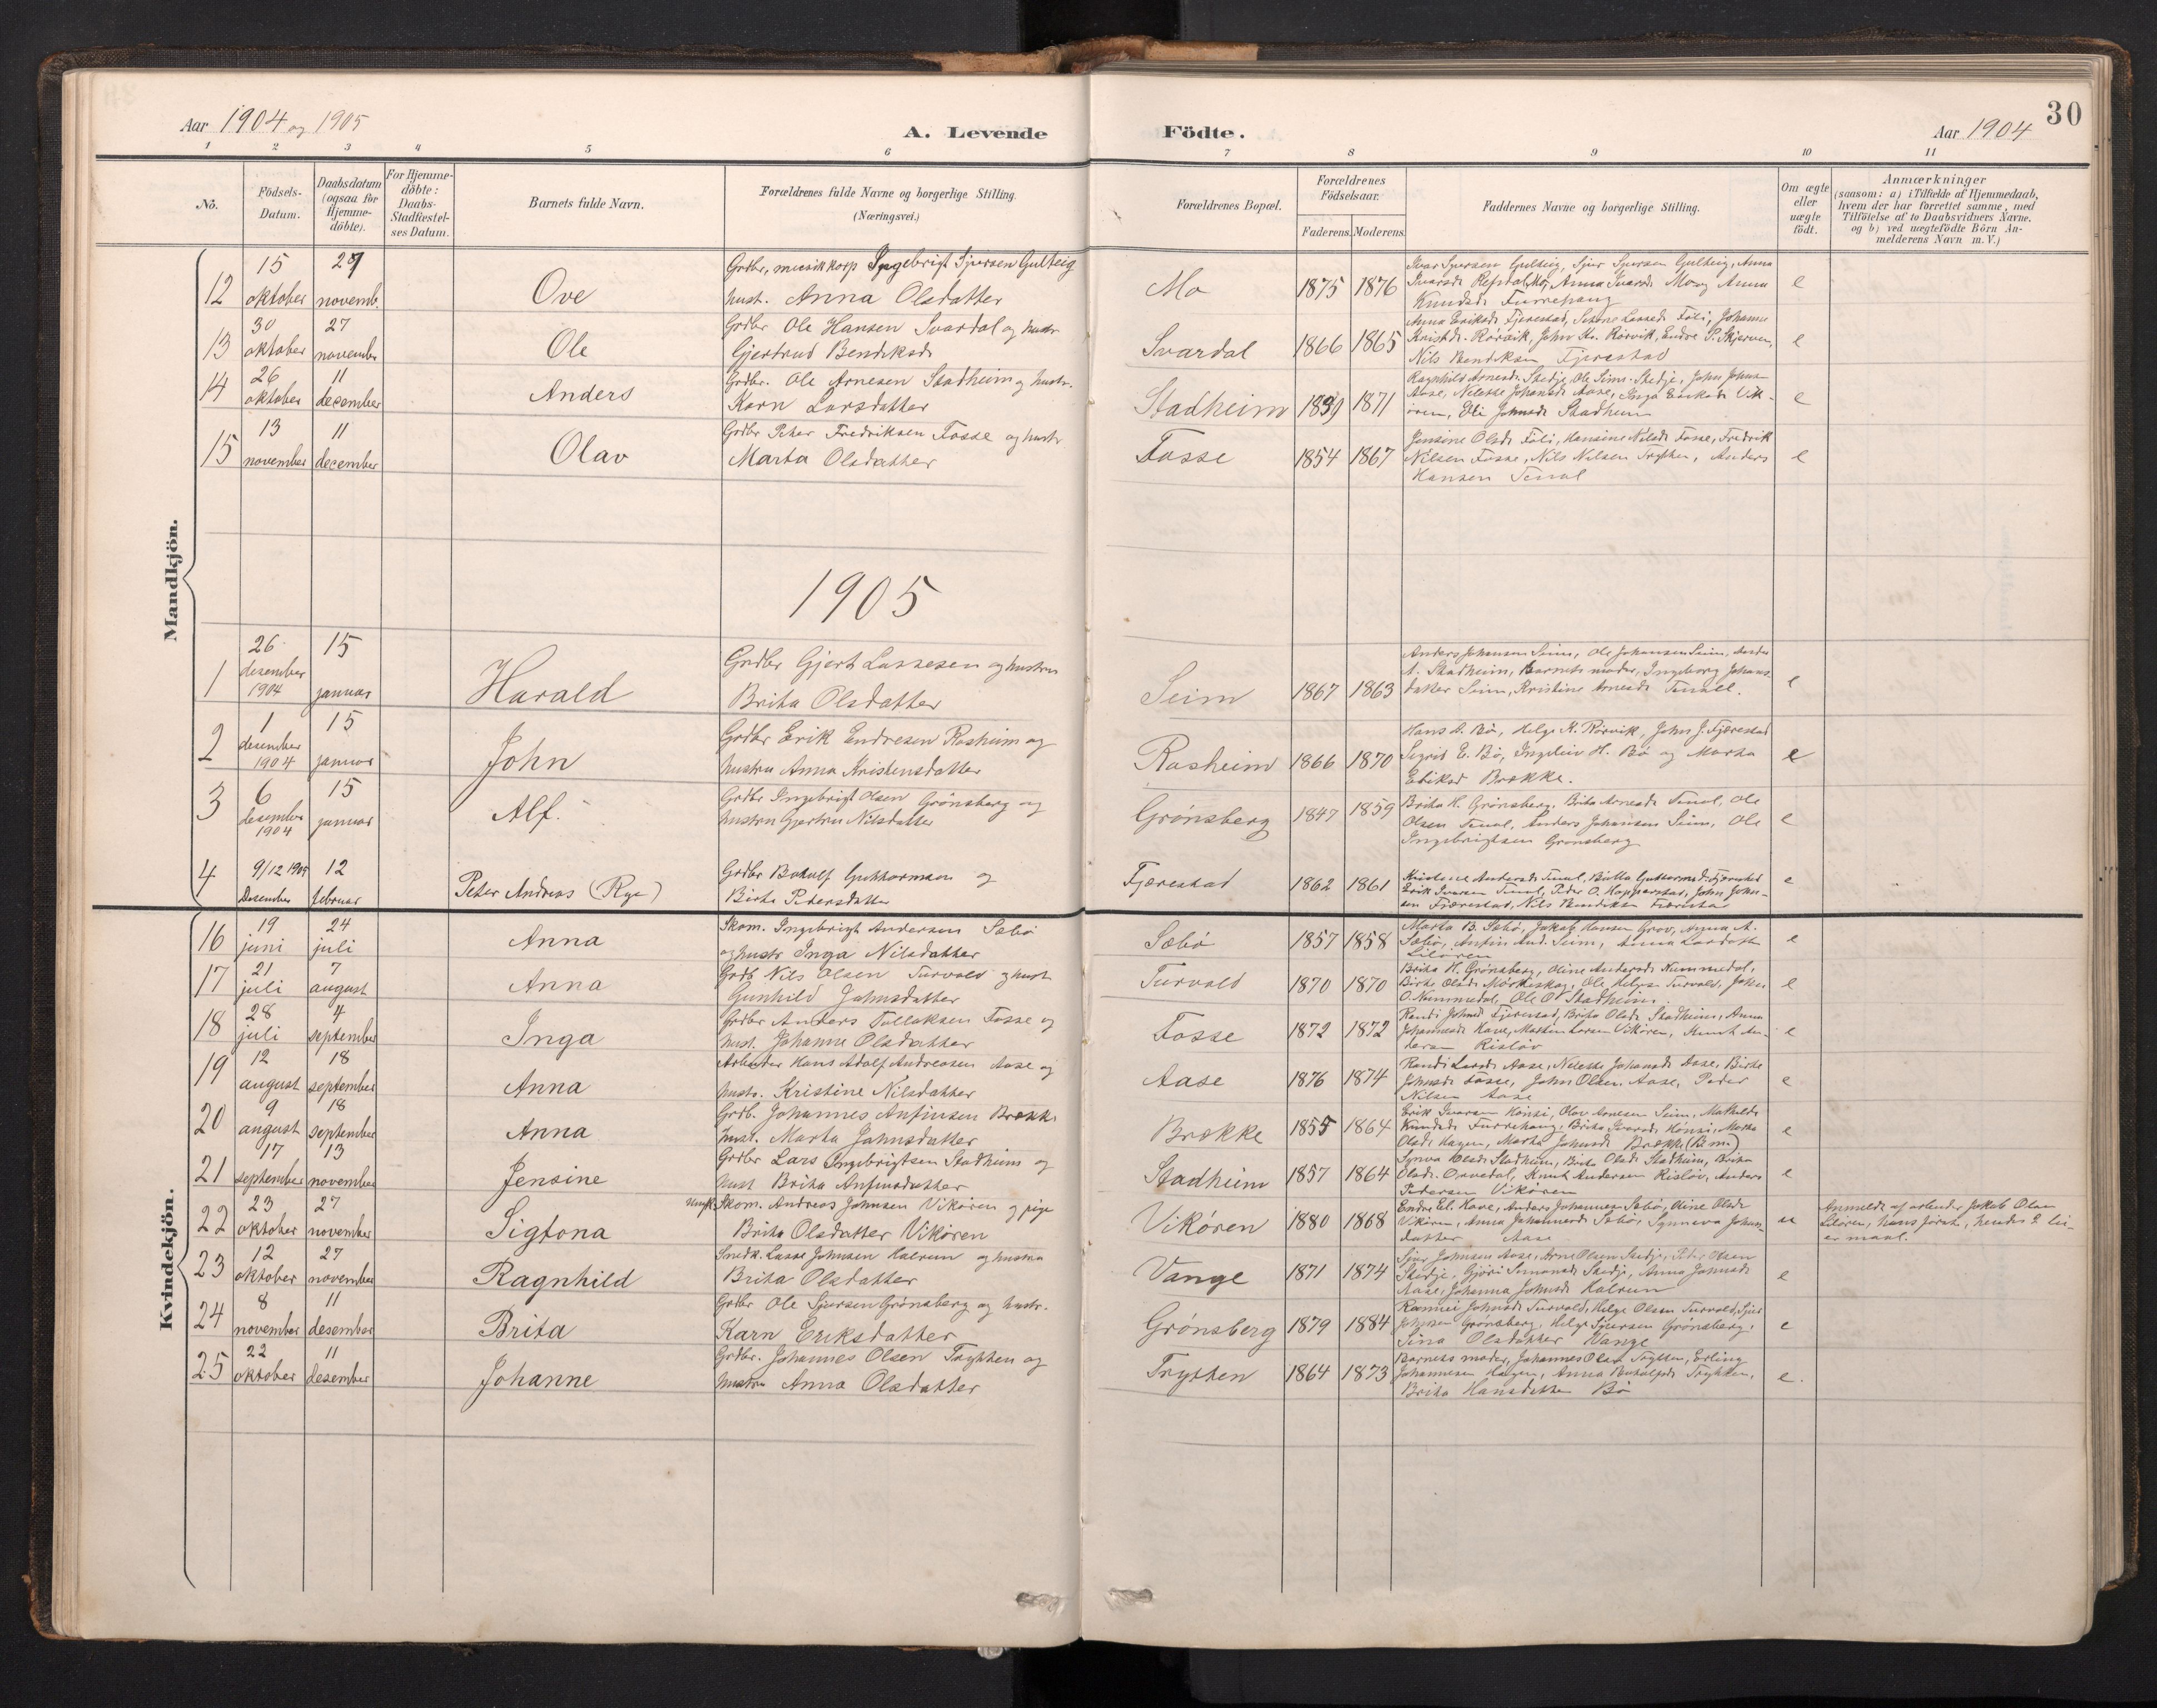 Aar 1904 og 1905
A. Levende Födte.
Aar 1904
30
1 2 3 4 5 6 7 8 9 10 11
No.
Födsels-Datum.
Daabsdatum (ogsaa for Hjemme-döbte).
For Hjemme-döbte: Daabs-Stadfæstel-ses Datum.
Barnets fulde Navn.
Forældrenes fulde Navne og borgerlige Stilling. (Næringsvei.)
Forældrenes Bopæl.
Forældrenes Födselsaar.
Faderens. Moderens.
Faddernes Navne og borgerlige Stilling.
Om ægte eller uægte födt.
Anmærkninger
(saasom: a) i Tilfælde af Hjemmedaab,
hvem der har forrettet samme, med
Tilföielse af to Daabsvidners Navne.
og b) ved uægtefödte Börn An-
melderens Navn m. V.)
Mandkjön.
12 15 oktober 27 novemb. Ove
Grdbr, musikkorp Ingebrigt Sjursen Gulteig
hust. Anna Olsdatter
Mo 1875 1876
Ivar Sjursen Gulteig, Sjur Sjursen Gulteig, Anna
Ivarsd. Refsdal, Anna Ivarsd. Mo og Anna
Knudsd. Furrehaug
e
13 30 oktober 27 novembe Ole
Grdbr Ole Hansen Svardal og hustr
Gjertrud Bendiksd
Svardal 1866 1865
Anna Eriksd. Fjerestad, Johanne
Kristd. Rørvik, John Kr. Rørvik, Endre P. Skjerven,
Nils Bendiksen Fjerestad
e
14 26 oktober 11 december Anders
Grdbr. Ole Arnesen Stadheim og hustr.
Karn Larsdatter
Stadheim 1859 1871
Ragnhild Arnesd. Skedje, Ole Sims. Skedje, John Johns
Aase, Nilette Johansd Aase, Inga Eriksd. Vik-
øren, Eli Johnsd. Stadheim
e
15 13 november 11 december Olav
Grdbr Peter Fredriksen Fosse og hustr
Marta Olsdatter
Fosse 1854 1867
Jensine Olsd. Föli, Hansine Nilsd. Fosse, Fredrik
Nilsen Fosse, Nils Nilsen Trytten, Anders
Hansen Tenal
e
1905
1 26 desember 1904 15 januar Harald
Grdbr Gjert Lassesen og hustru
Brita Olsdatter
Seim 1867 1863
Anders Johansen Seim, Ole Johansen Seim, Anders
A. Stadheim, Barnets moder, Ingeborg Johans
datter Seim, Kristine Arnesd. Tenall.
e
2 1 desember 1904 15 januar John
Grdbr Erik Endresen Rasheim og
hustru Anna Kristensdatter
Rasheim 1866 1870
Hans A. Bö, Helge K. Rörvik, John J. Fjærestad
Sigrid E. Bö, Ingeleiv H. Bö og Marta
Eriksd Brække.
e
3 6 desember 1904 15 januar Alf.
Grdbr Ingebrigt Olsen Grönsberg og
hustru Gjertru Nilsdatter
Grönsberg 1847 1859
Brita H. Grönsberg, Brita Arnesd. Tenal, Ole
Olsen Tenal, Anders Johansen Seim, Ole
Ingebrigtsen Grønsberg
e
4 9/12 1904 Desember 12 februar Peter Andreas (Rye)
Grdbr Botolf Guttormsen og
Birte Pedersdatter
Fjærestad 1862 1861
Kristense Andersd. Tenal, Britta Guttormsd. Fjærestad
Erik Ivarsen Tenal, Peder O. Hopperstad, John John-
sen Fjærestad, Nils Bendiksen Fjærestad
e
Kvindekjön.
16 19 juni 24 juli Anna
Skom. Ingebrigt Andersen Sæbö
og hustr Inga Nilsdatter
Sæbö 1857 1858
Marta B. Sæbö, Jakob Hansen Grov, Anna A.
Sæbö, Anfin And. Seim, Anna Larsdatt
Liløren
e
17 21 juli 7 august Anna
Grdb Nils Olsen Turvold og hust
Gunhild Johnsdatter
Turvold 1870 1870
Brita H. Grönsberg, Oline Andersd. Nummedal,
Birte Olsd. Mörkeskog, Ole Helges. Turvold, John
O. Nummedal, Ole O. Stadheim.
e
18 28 juli 4 september Inga
Grdbr Anders Tollaksen Fosse og
hust. Johanne Olsdatter
Fosse 1872 1872
Randi Johnsd. Fjerestad, Brita Olsd. Stadheim, Anna
Johannesd. Hove, Martin Larsen Vikören, Knut An-
dersen Risløv
e
19 12 august 18 september Anna
Arbeider Hans Adolf Andreasen Aase og
hustr. Kristine Nilsdatter
Aase 1876 1874
Randi Larsd. Aase, Nilette Johansd. Aase, Birte
Johnsd. Fosse, John Olsen Aase, Peder
Nilsen Aase
e
20 9 august 18 september Anna
Grdb. Johannes Anfinsen Brække
hust. Marta Johnsdatter
Brække 1855 1864
Erik Ivarsen Hönsi, Olav Arnesen Seim, Mathilde
Knutsd. Furrehaug, Brita Ivarsd. Hönsi, Marta
Olsd. Hagen, Marta Johnsd. Brække (B.m.)
e
21 17 september 13 november Jensine
Grdbr Lars Ingebrigtsen Stadheim og
hust Brita Anfinsdatter
Stadheim 1857 1864
Synva Olsd. Stadheim, Brita Olsd. Stadheim, Brita
Olsd. Orvedal, Knut Andersen Risløv, Anders
Pedersen Vikøren
e
22 23 oktober 27 november Sigtona
Ungk. Skom. Andreas Johnsen Vikøren og pige
Brita Olsdatter Vikören
Vikøren 1880 1868
Endre El. Hove, Anders Johannesen Sæbö, Oline Olsd.
Vikören, Anna Johannesd. Sæbö, Synneva Johans-
datter Aase
u
Anmeldt af arbeider Jakob Olsen
Liløren, hans først, hendes 2 lei-
er maal.
23 12 oktober 27 november Ragnhild
Snedk. Lasse Johnsen Halrun og hustru
Brita Olsdatter
Vange 1871 1874
Sjur Johnsen Aase, Arne Olsen Skedje, Peter Olsen
Skedje, Gjöri Simonsd. Skedje, Anna Johnsd.
Aase, Johanna Johnsd. Halrun
e
24 8 november 11 desember Brita
Grdbr Ole Sjursen Grønsberg og hustr.
Karn Eriksdatter
Grønsberg 1879 1884
Rannei Johnsd. Turvold, Helge Olsen Turvold, Sjur
Johnsen Grønsberg, Helge Sjursen Grønsberg,
Sina Olsdatter Vange
e
25 22 oktober 11 desember Johanne
Grdbr. Johannes Olsen Trytten og
hustru Anna Olsdatter
Trytten 1864 1873
Barnets moder, Johannes Olsen Trytten, Erling
Johannesen Hagen, Anna Botolfsd. Trytten,
Brita Hansdatter Bö
e.